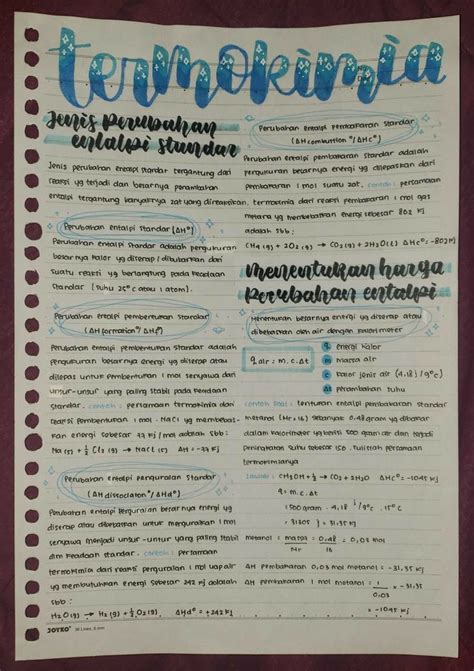 termokimia
Jenis perubahan
entalpi standar
Jenis perubahan entalpi standar tergantung dari
reaksi yg terjadi dan besarnya penambahan
entalpi tergantung banyaknya zat yang direaksikan.
Perubahan entalpi standar (ΔH°)
Perubahan entalpi standar adalah pengukuran
besarnya kalor yg diserap / dibutuhkan dari
suatu reaksi yg berlangsung pada keadaan
standar (suhu 25°c atau 1 atom).
Perubahan entalpi pembentukan standar
(ΔH formation° / ΔHf°)
Perubahan entalpi pembentukan standar adalah
pengukuran besarnya energi yg diserap atau
dilepas untuk pembentukan 1 mol senyawa dari
unsur-unsur yang paling stabil pada keadaan
standar. contoh : persamaan termokimia dari
reaksi pembentukan 1 mol NaCl yg membebas-
kan energi sebesar 77 kj / mol adalah sbb:
Na (s) + ½ Cl₂ (g) → NaCl (s) ΔH = -77 kj
Perubahan entalpi penguraian standar
(ΔH dissociaton° / ΔHd°)
Perubahan entalpi penguraian besarnya energi yg
diserap atau dibebaskan untuk menguraikan 1 mol
senyawa menjadi unsur-unsur yang paling stabil
dlm keadaan standar. contoh : persamaan
termokimia dari reaksi penguraian 1 mol uap air
yg membutuhkan energi sebesar 242 kj adalah
sbb :
H₂O (g) → H₂ (g) + ½ O₂ (g) ΔHd° = +242 kj
JOYKO
Perubahan entalpi pembakaran standar
(ΔH combustion° / ΔHc°)
Perubahan entalpi pembakaran standar adalah
pengukuran besarnya energi yg dilepaskan dari
pembakaran 1 mol suatu zat. contoh : persamaan
termokimia dari reaksi pembakaran 1 mol gas
metana yg membebaskan energi sebesar 802 kj
adalah sbb :
CH₄ (g) + 2O₂ (g) → CO₂ (g) + 2H₂O (l) ΔHc° = -802 kj
menentukan harga
perubahan entalpi
Menentukan besarnya energi yg diserap atau
dibebaskan oleh air dengan kalorimeter
q air = m . c . Δt
q energi kalor
m massa air
c kalor jenis air (4,18 j/g°c)
Δt perambahan suhu
contoh soal : tentukan entalpi pembakaran standar
metanol (Mr, 16) sebanyak 0,48 gram yg dibakar
dalam kalorimeter yg berisi 500 gram air dan terjadi
peningkatan suhu sebesar 150. tulislah persamaan
termokimianya
Jawab : CH₃OH + ½ → CO₂ + 2H₂O ΔHc° = -1045 kj
q = m . c . Δt
: 500 gram . 4,18 j/g°c . 15°c
: 31305 j = 31,35 kj
metanol = massa / Mr = 0,48 / 16 = 0,03 mol
ΔH pembakaran 0,03 mol metanol = -31,35
ΔH pembakaran 1 mol metanol = 1 / 0,03 × -31,35
= -1045 kj